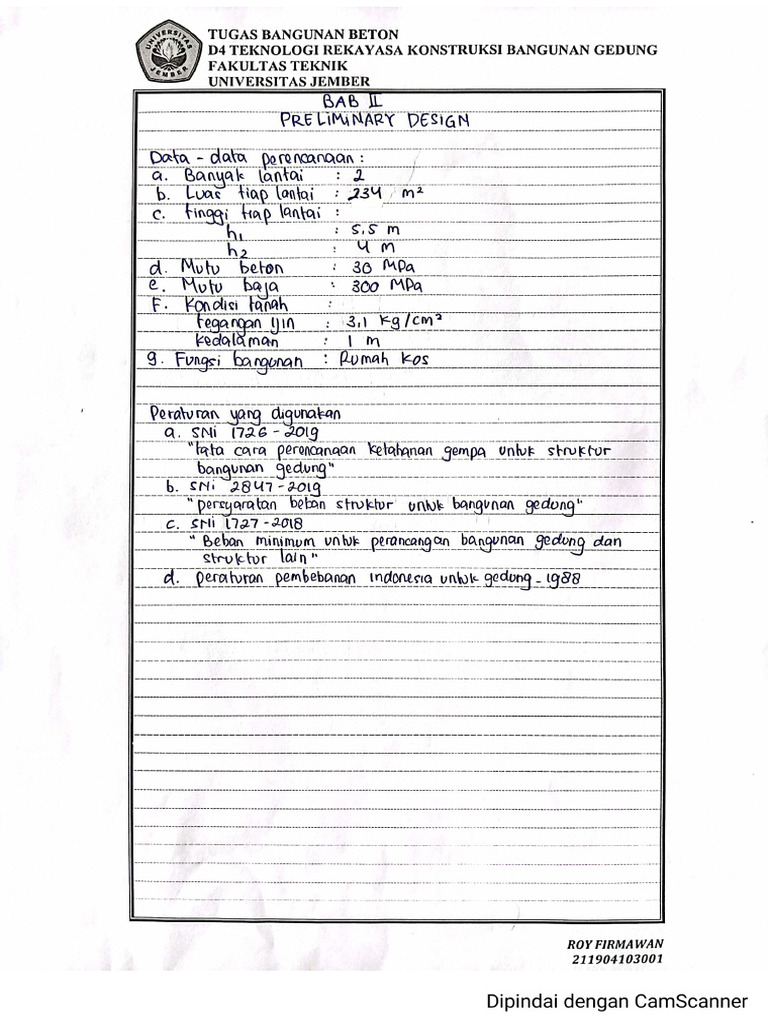 UNIVERSITAS
JEMBER
TUGAS BANGUNAN BETON
D4 TEKNOLOGI REKAYASA KONSTRUKSI BANGUNAN GEDUNG
FAKULTAS TEKNIK
UNIVERSITAS JEMBER
BAB II
PRELIMINARY DESIGN
Data - data perencanaan :
a. Banyak lantai : 2
b. Luas tiap lantai : 234 m²
c. tinggi tiap lantai :
h₁ : 5,5 m
h₂ : 4 m
d. Mutu beton : 30 MPa
e. Mutu baja : 300 MPa
F. Kondisi tanah :
tegangan ijin : 3,1 kg/cm²
kedalaman : 1 m
g. Fungsi bangunan : Rumah kos
Peraturan yang digunakan
a. SNI 1726 - 2019
"tata cara perencanaan ketahanan gempa untuk struktur
bangunan gedung"
b. SNI 2847 - 2019
"persyaratan beban struktur untuk bangunan gedung"
c. SNI 1727 - 2018
"Beban minimum untuk perancangan bangunan gedung dan
struktur lain"
d. peraturan pembebanan Indonesia untuk gedung - 1988
ROY FIRMAWAN
211904103001
Dipindai dengan CamScanner